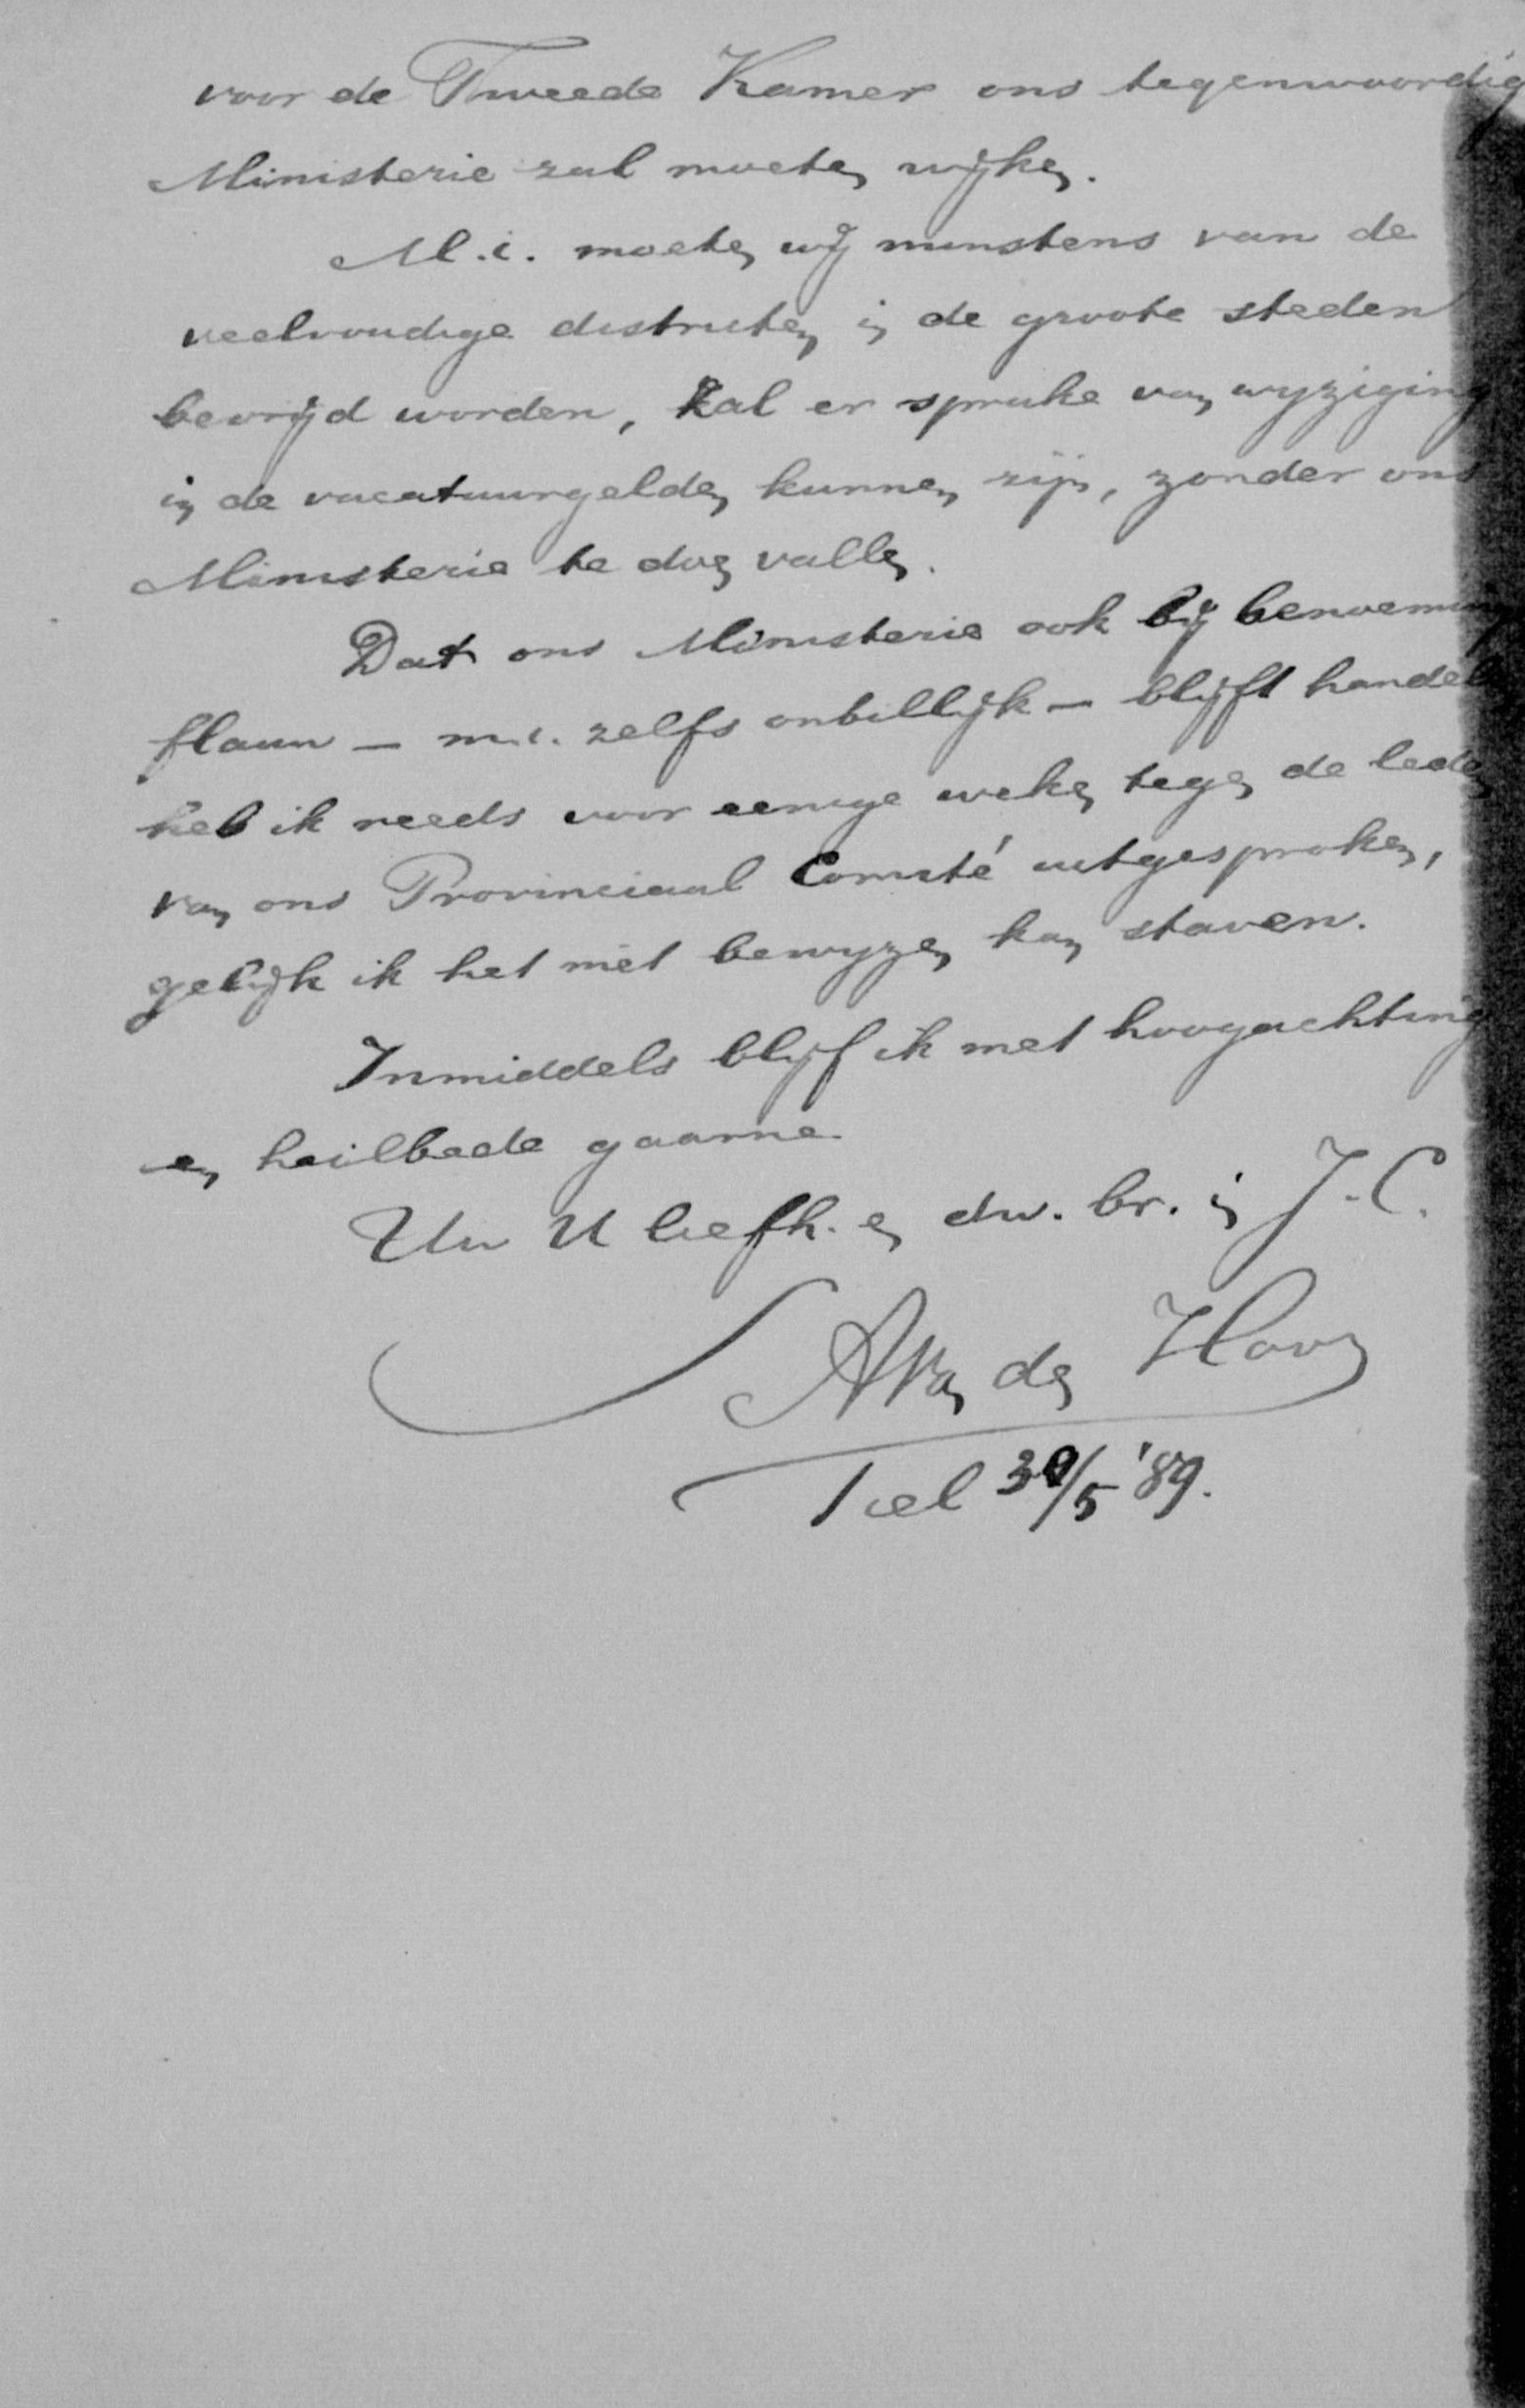 voor de Tweede Kamer ons tegenwoordig
Ministerie zal moeten wijken.
M.i. moeten wij minstens van de
veelvoudige districten in de groote steden
bevrijd worden, zal er sprake van wyziging
in de vacatuurgelden kunnen zijn, zonder ons
Ministerie te doen vallen.
Dat ons Ministerie ook bij benoeming
flauw — m.i. zelfs onbillijk — blijft handelen
heb ik reeds voor eenige weken tegen de leden
van ons Provinciaal Comité uitgesproken,
gelijk ik het met bewyzen kan staven.
Inmiddels blijf ik met hoogachting
en heilbede gaarne
Uw U liefh. en dw. br. in J. C.
van den Hoven
Tiel 30/5 '89.